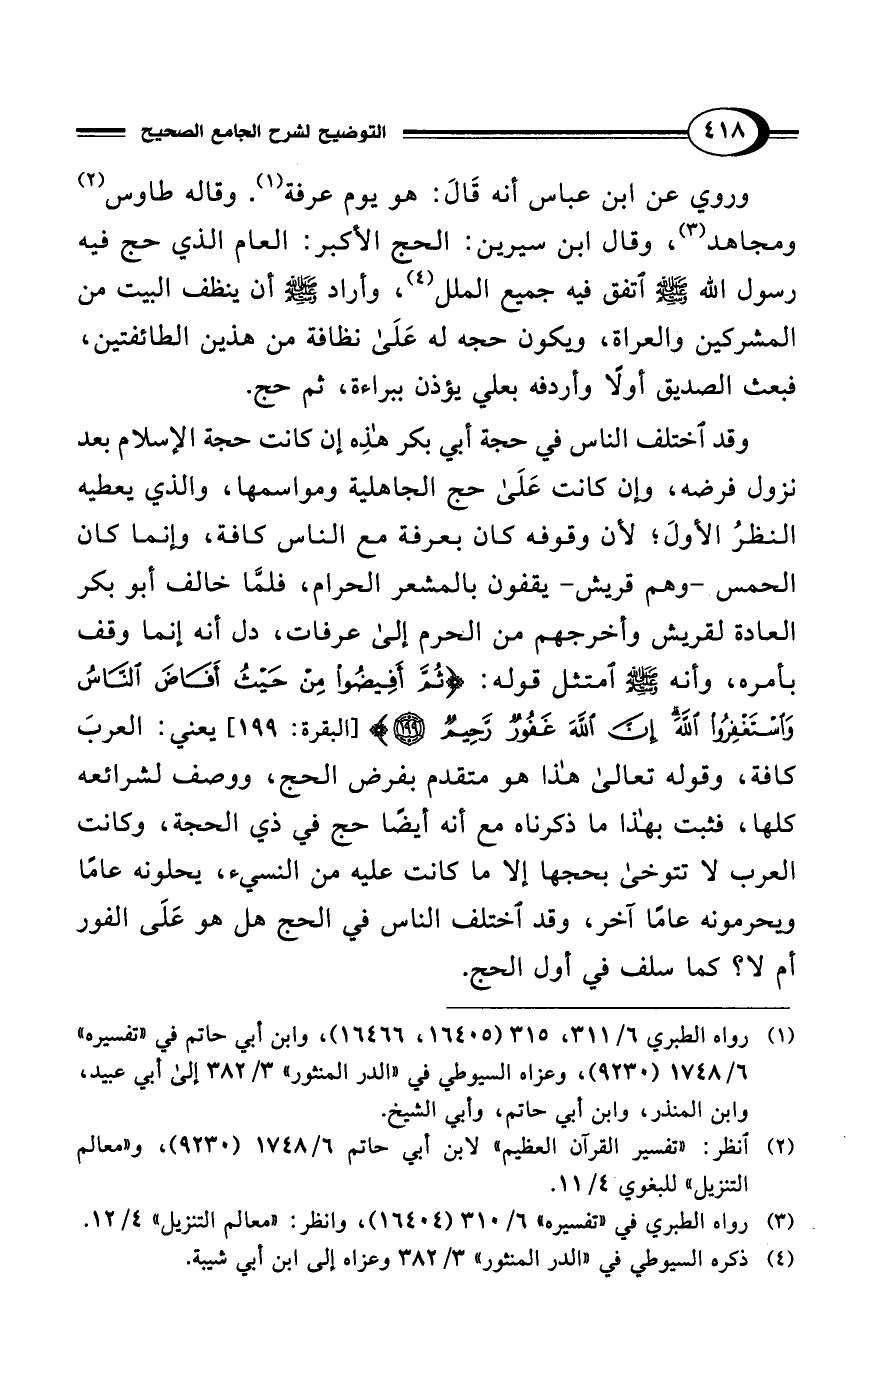 ٤١٨ التوضيح لشرح الجامع الصحيح
وروي عن ابن عباس أنه قَالَ: هو يوم عرفة(١). وقاله طاوس(٢)
ومجاهد(٣)، وقال ابن سيرين: الحج الأكبر: العام الذي حج فيه
رسول الله ﷺ ٱتفق فيه جميع الملل(٤)، وأراد ﷺ أن ينظف البيت من
المشركين والعراة، ويكون حجه له عَلَىٰ نظافة من هذين الطائفتين،
فبعث الصديق أولًا وأردفه بعلي يؤذن ببراءة، ثم حج.
وقد ٱختلف الناس في حجة أبي بكر هذِه إن كانت حجة الإسلام بعد
نزول فرضه، وإن كانت عَلَىٰ حج الجاهلية ومواسمها، والذي يعطيه
النظرُ الأولَ؛ لأن وقوفه كان بعرفة مع الناس كافة، وإنما كان
الحمس -وهم قريش- يقفون بالمشعر الحرام، فلمَّا خالف أبو بكر
العادة لقريش وأخرجهم من الحرم إلىٰ عرفات، دل أنه إنما وقف
بأمره، وأنه ﷺ ٱمتثل قوله: ﴿ثُمَّ أَفِيضُوا۟ مِنْ حَيْثُ أَفَاضَ ٱلنَّاسُ
وَٱسْتَغْفِرُوا۟ ٱللَّهَۚ إِنَّ ٱللَّهَ غَفُورٌ رَّحِيمٌ ١٩٩﴾ [البقرة: ١٩٩] يعني: العربَ
كافة، وقوله تعالىٰ هذا هو متقدم بفرض الحج، ووصف لشرائعه
كلها، فثبت بهذا ما ذكرناه مع أنه أيضًا حج في ذي الحجة، وكانت
العرب لا تتوخىٰ بحجها إلا ما كانت عليه من النسيء، يحلونه عامًا
ويحرمونه عامًا آخر، وقد ٱختلف الناس في الحج هل هو عَلَى الفور
أم لا؟ كما سلف في أول الحج.
(١) رواه الطبري ٦/ ٣١١، ٣١٥ (١٦٤٠٥، ١٦٤٦٦)، وابن أبي حاتم في «تفسيره»
٦/ ١٧٤٨ (٩٢٣٠)، وعزاه السيوطي في «الدر المنثور» ٣/ ٣٨٢ إلىٰ أبي عبيد،
وابن المنذر، وابن أبي حاتم، وأبي الشيخ.
(٢) ٱنظر: «تفسير القرآن العظيم» لابن أبي حاتم ٦/ ١٧٤٨ (٩٢٣٠)، و«معالم
التنزيل» للبغوي ٤/ ١١.
(٣) رواه الطبري في «تفسيره» ٦/ ٣١٠ (١٦٤٠٤)، وانظر: «معالم التنزيل» ٤/ ١٢.
(٤) ذكره السيوطي في «الدر المنثور» ٣/ ٣٨٢ وعزاه إلى ابن أبي شيبة.